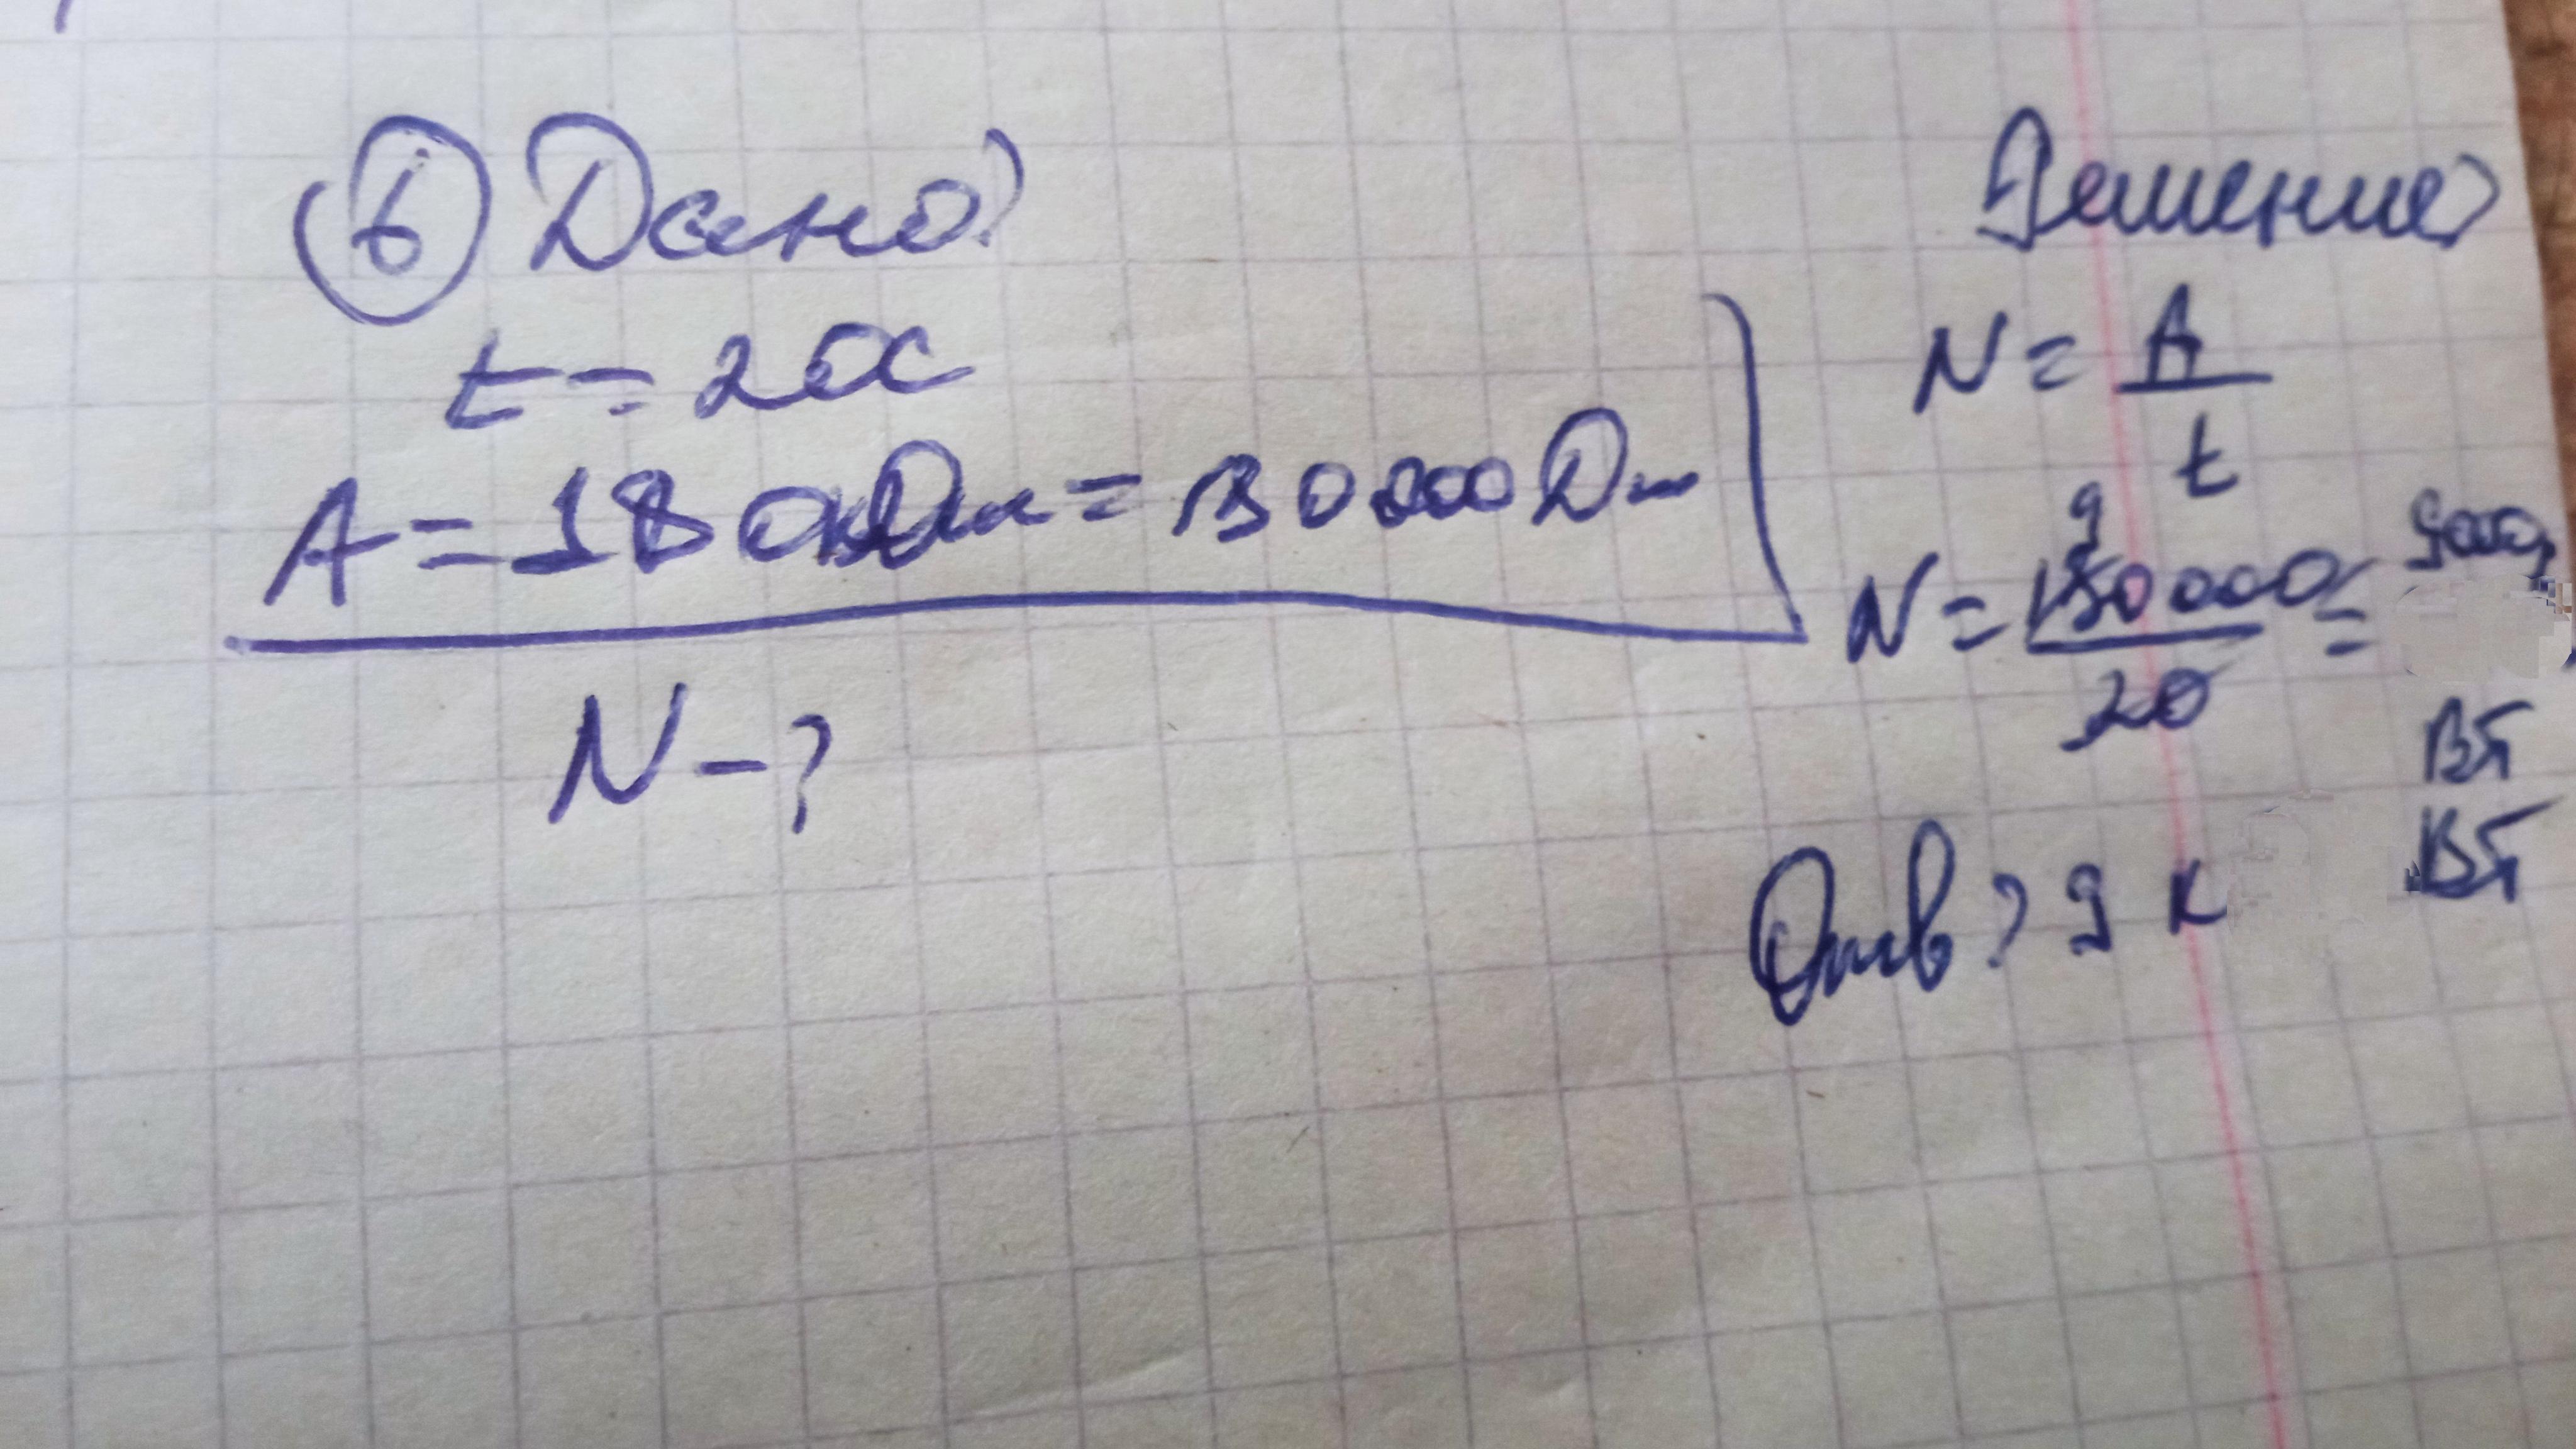 6 Дано:
t = 20с
A = 180кДж = 180000Дж
N - ?
Решение:
N = A / t
N = 180000 / 20 = 9000
9
Вт
Отв: 9 к Вт